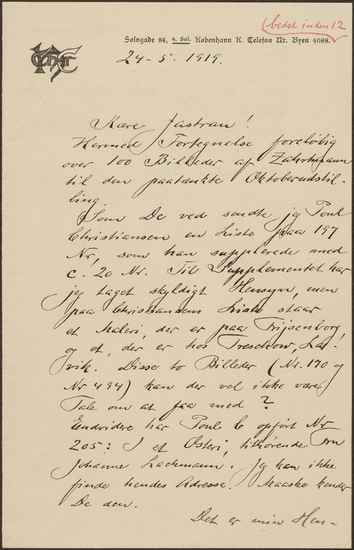 besed inden 12
Solvgade 84, 4. Sal. København K. Telefon Nr. Byen 4088.
24-5. 1919.
Kære Jastrau!
Hermed Fortegnelse foreløbig
over 100 Billeder af Zahrtmann
til den paatænkte Oktoberudstil-
ling.
Som De ved sendte jeg Poul
Christiansen en Liste paa 197
Nr, som han supplerede med
c. 20 Nr. Til Supplementet har
jeg taget skyldigt Hensyn, men
paa Christiansens Liste staar
et Maleri, der er paa Frijsenborg,
og et, der er hos Treschow, Lar-
vik. Disse to Billeder (Nr. 170 og
Nr 434) kan der vel ikke være
Tale om at faa med?
Endvidere har Poul C opført Nr
205: et Osteri, tilhørende Frn
Johanne Lachmann. Jeg kan ikke
finde hendes Adresse. Maaske kender
De den.
Det er min Hen-